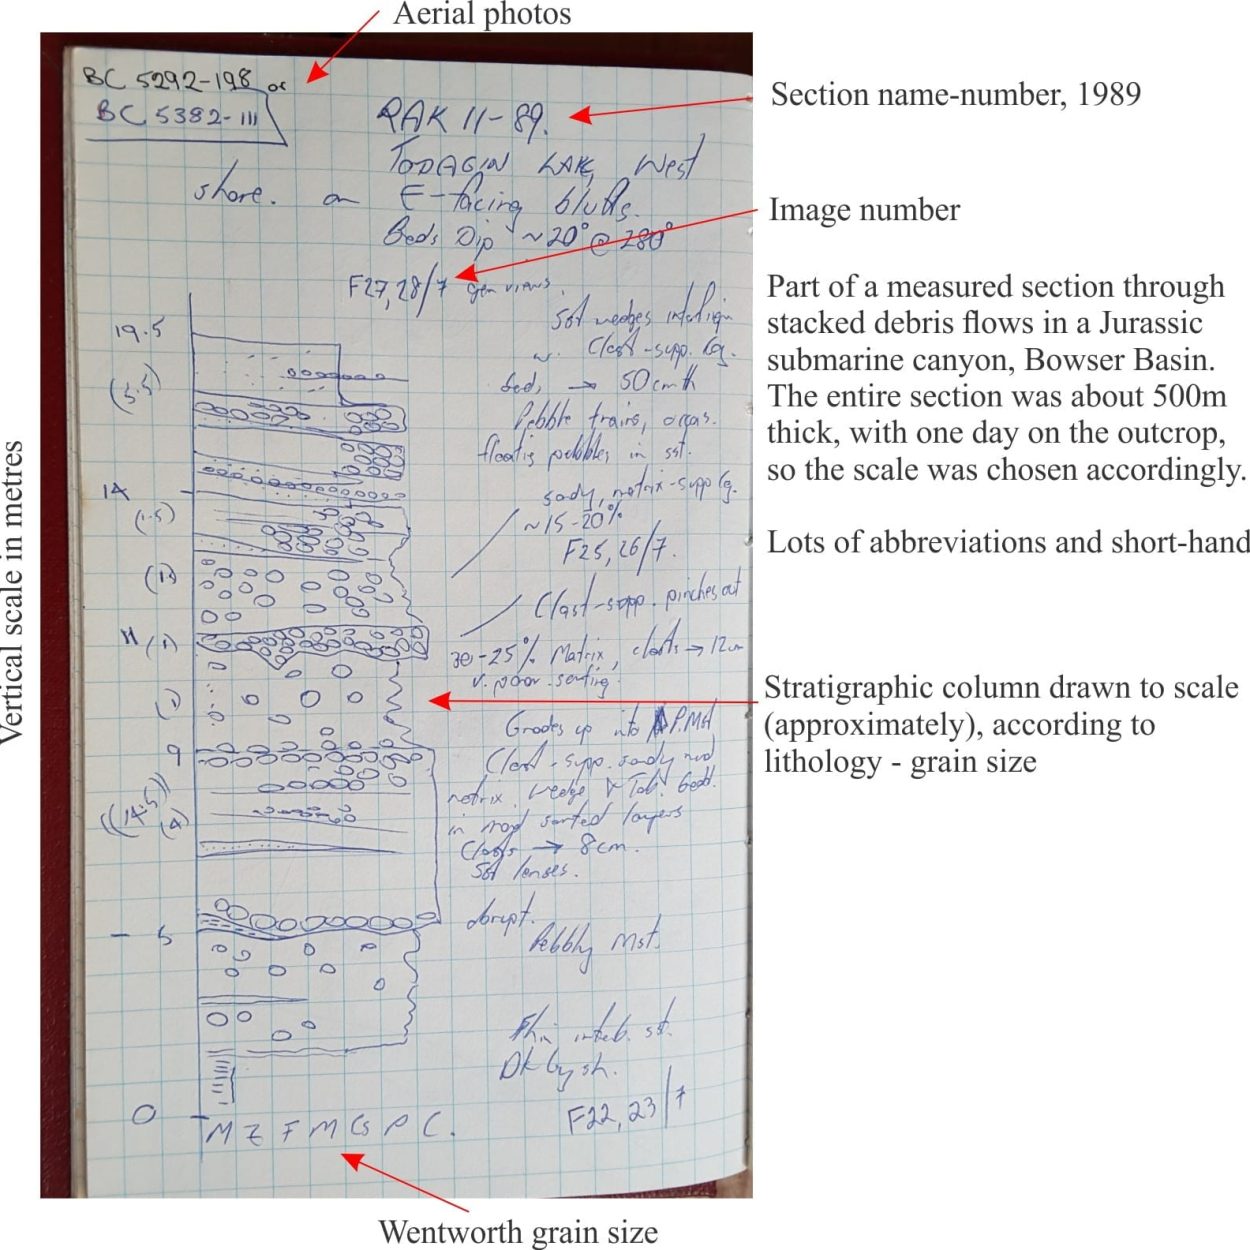 Aerial photos
BC 5292-198 or
BC 5382-111
RAK 11-89.
Section name-number, 1989
TODAGIN LAKE, West
shore. on E-facing bluffs.
Beds Dip ~20° @ 280°
Image number
F27,28/7 gen views.
Part of a measured section through
stacked debris flows in a Jurassic
submarine canyon, Bowser Basin.
The entire section was about 500m
thick, with one day on the outcrop,
so the scale was chosen accordingly.
Lots of abbreviations and short-hand
Sst wedges
w. Clast-supp. Cg.
beds → 50cm th
Pebble trains, occas.
floating pebbles in sst.
sandy, matrix-supp Cg.
~15-20%
F25, 26/7.
Clast-supp. pinches out
30-25% Matrix, clasts → 12cm
v. poor sorting.
Stratigraphic column drawn to scale
(approximately), according to
lithology - grain size
Grades up into P.Mst
Clast-supp. sandy mud
matrix. Wedge & Tab. bedd.
in mod sorted layers
Clasts → 8cm.
Sst lenses.
abrupt.
Pebbly Mst.
Thin interb. sst.
Dk Gy sh.
F22, 23/7
19.5
(5.5)
14
(1.5)
11 (1)
9
((14.5))
(4)
5
0
M Z F M Cs P C.
Vertical scale in metres
Wentworth grain size